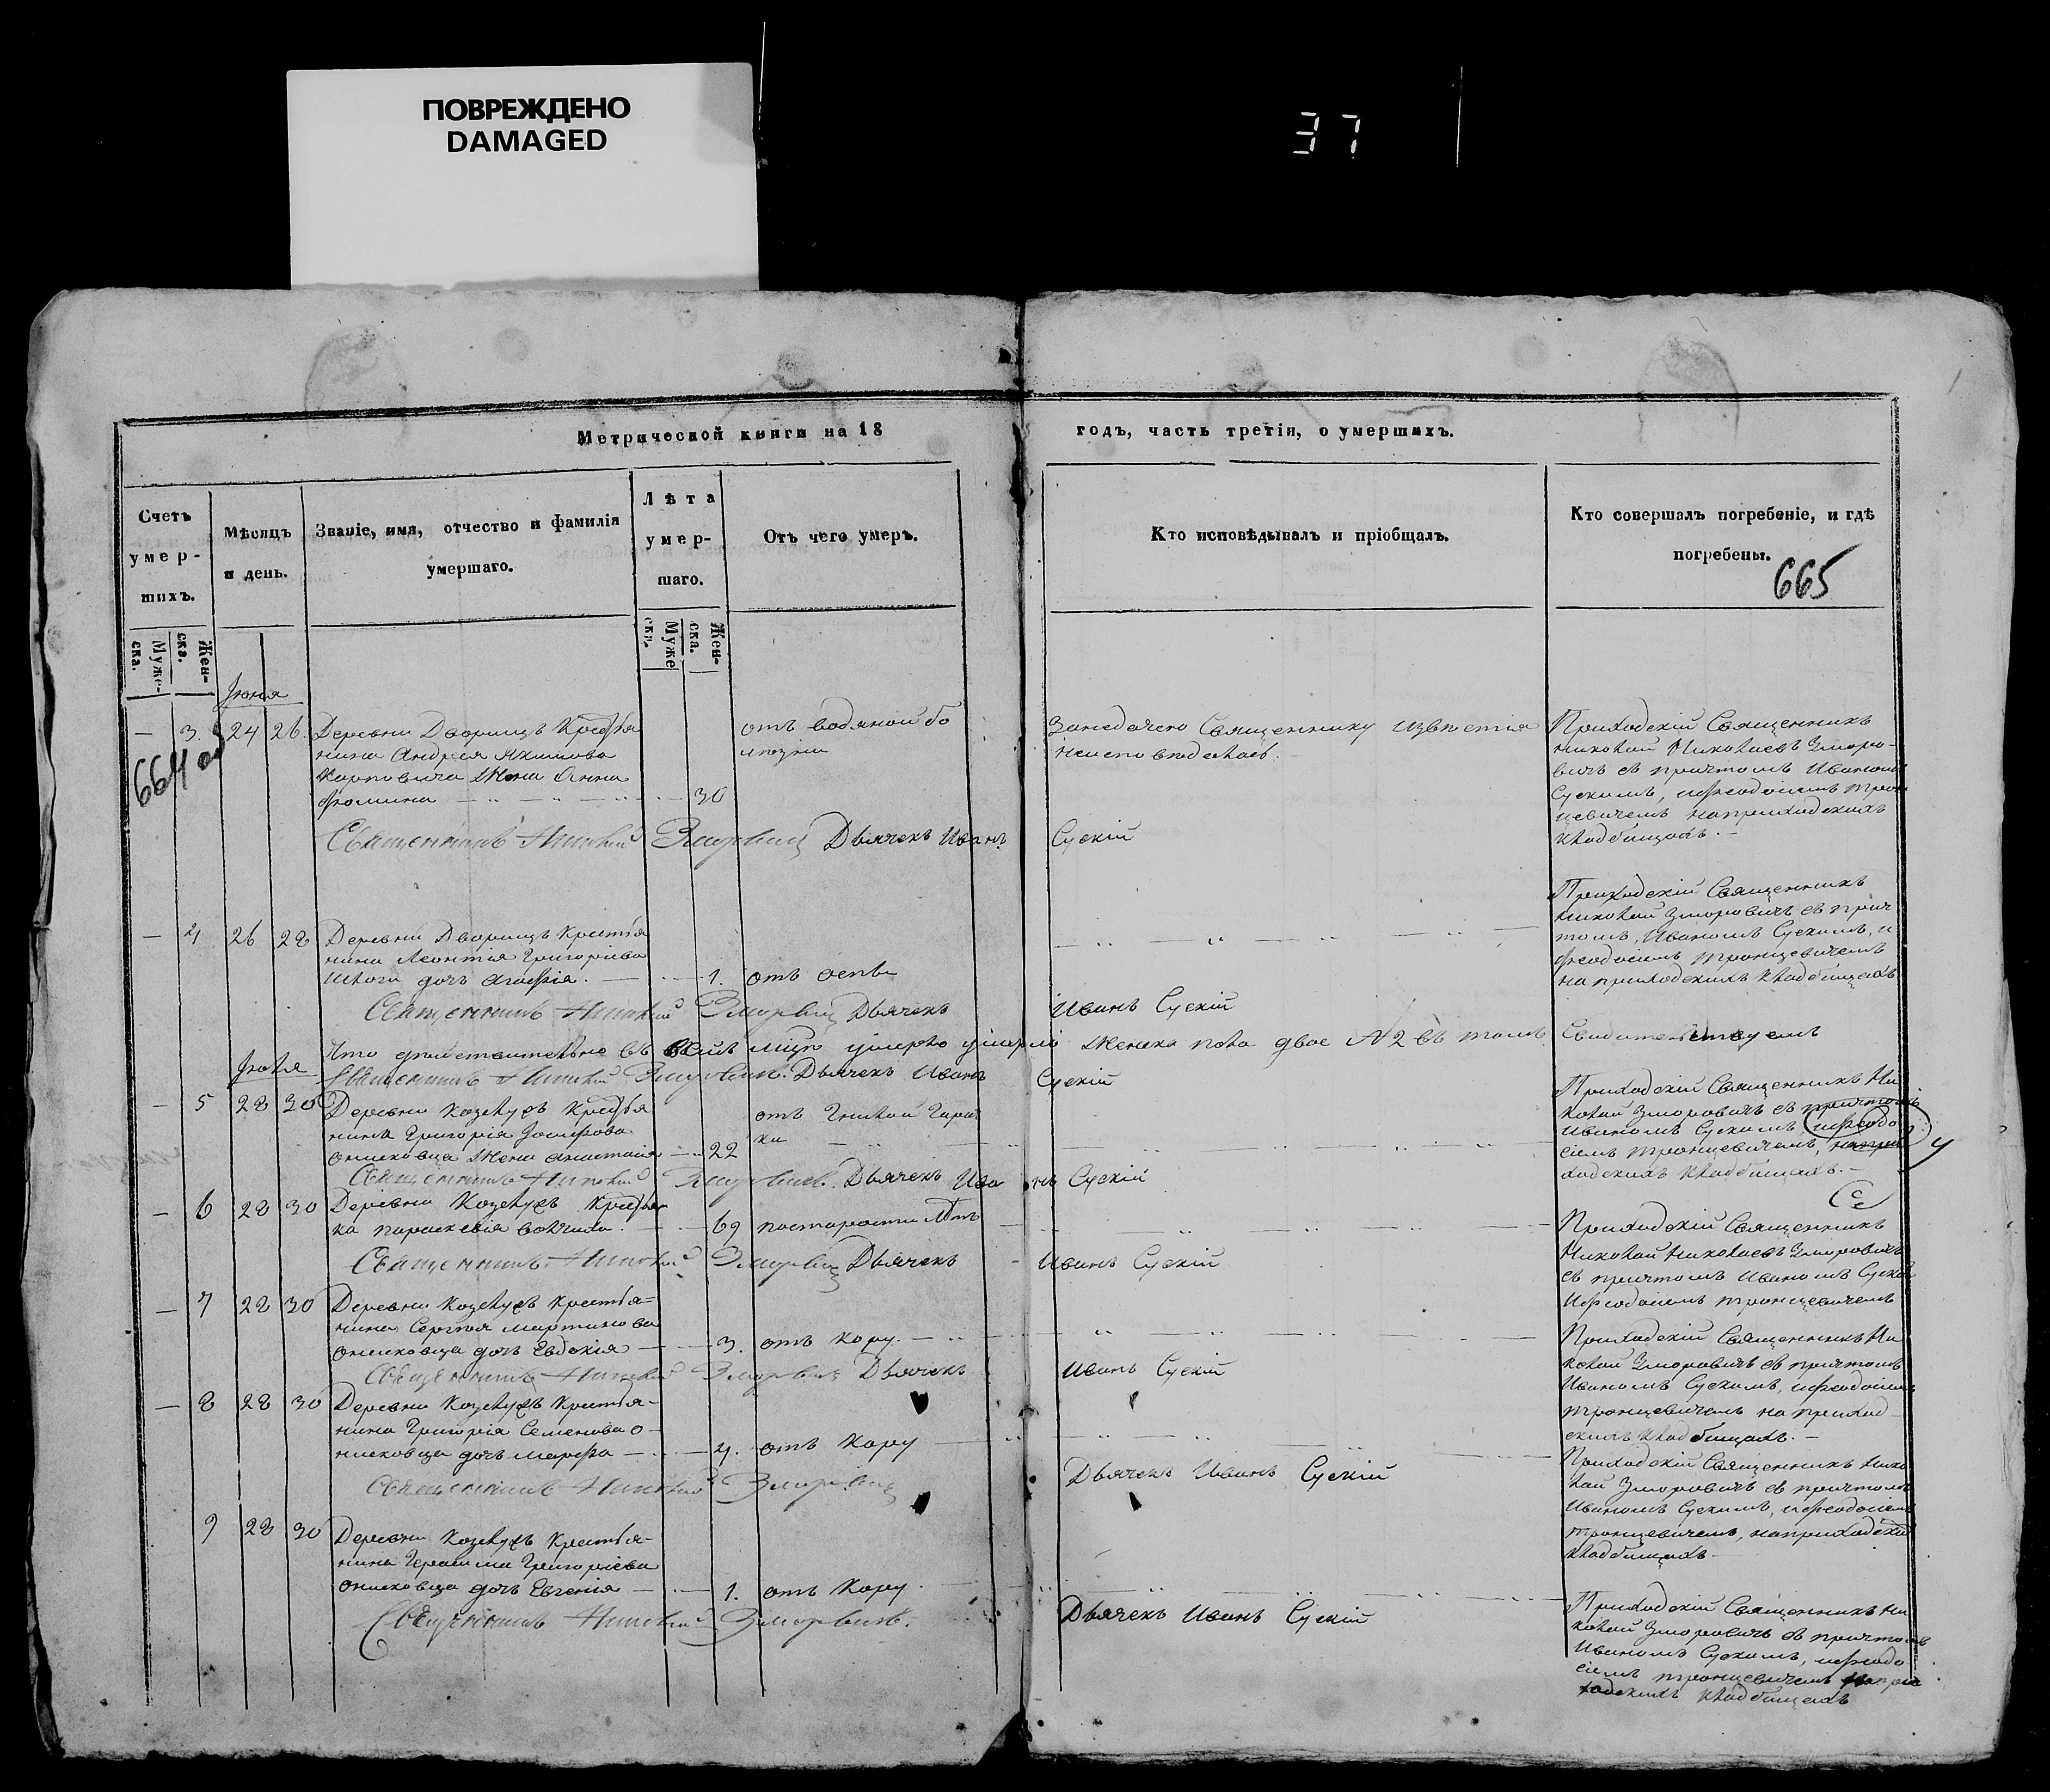 ПОВРЕЖДЕНО
DAMAGED
37
Метрической книги на 18 годъ, часть третія, о умершихъ.
Счетъ умер-
шихъ.
Мѣсяцъ
и день.
Званіе, имя, отчество и фамилія
умершаго.
Лѣта
умер-
шаго.
Отъ чего умеръ.
Кто исповѣдывалъ и пріобщалъ.
Кто совершалъ погребеніе, и гдѣ
погребены.
665
Муже-
ска.
Жен-
ска.
Муже
ска.
Жен-
ска.
Іюня
664 об
3. 24 26. Деревни Дворищъ Крестья
нина Андрея Якимова
Карповича жена Анна
Фомина 30
отъ водяной бо
лѣзни
Священнику извѣстія
Приходскій Священникъ
Николай Николаевъ Зморо-
вичъ съ причтомъ Иваномъ
Сускимъ, иѲеодосіемъ Трон
цевичемъ наприходскихъ
кладбищахъ.
Священникъ Николай Зморовичъ Дьячекъ Иванъ Сускій
4 26 28 Деревни Дворищъ Крестья
нина Леонтія Григоріева
дочь Агафія. 1. отъ оспы
Приходскій Священникъ
Николай Зморовичъ съ прич
томъ, Иваномъ Сускимъ, и
Ѳеодосіемъ Тронцевичемъ
на приходскихъ кладбищахъ
Священникъ Николай Зморовичъ Дьячекъ Иванъ Сускій
Что дѣйствительно въ семъ мѣсяцѣ умерло женска пола двое №2 въ томъ Свидетельствуемъ
Священникъ Николай Зморовичъ. Дьячекъ Иванъ Сускій
Іюля
5 28 30 Деревни Козлукъ Крестья
нина Григорія Іосифова
Онисковца жена Анастасія 22
отъ Гнилой Гаряч
ки
Приходскій Священникъ Ни
колай Зморовичъ съ причтомъ
Иваномъ Сускимъ иѲеодо
сіемъ Тронцевичемъ, напри
ходскихъ кладбищахъ.
Священникъ Николай Зморовичъ. Дьячекъ Иванъ Сускій
6 28 30 Деревни Козлукъ Крестьян
ка Параскевія 69 постарости лѣтъ
Приходскій Священникъ
Николай Николаевъ Зморовичъ
съ причтомъ Иваномъ Сускимъ
иѲеодосіемъ Тронцевичемъ
Священникъ Николай Зморовичъ Дьячекъ Иванъ Сускій
7 28 30 Деревни Козлукъ Крестья-
нина Сергѣя Мартинова
Онисковца дочь Евдокія 3. отъ кору.
Приходскій Священникъ Ни
колай Зморовичъ съ причтомъ
Иваномъ Сускимъ, иѲеодосіемъ
Тронцевичемъ на приход-
скихъ кладбищахъ.
Священникъ Николай Зморовичъ Дьячекъ Иванъ Сускій
8 28 30 Деревни Козлукъ Крестья-
нина Григорія Семенова О-
нисковца дочь Марфа 4. отъ кору
Приходскій Священникъ Нико
лай Зморовичъ съ причтомъ
Иваномъ Сускимъ, иѲеодосіемъ
Тронцевичемъ, наприходских
кладбищахъ
Священникъ Николай Зморовичъ Дьячекъ Иванъ Сускій
9 28 30 Деревни Козлукъ Крестья-
нина Герасима Григоріева
Онисковца дочь Евгенія 1. отъ кору.
Приходскій Священникъ Ни
колай Зморовичъ съ причтомъ
Иваномъ Сускимъ, иѲеодо
сіемъ Тронцевичемъ напри
ходскихъ кладбищахъ
Священникъ Николай Зморовичъ. Дьячекъ Иванъ Сускій